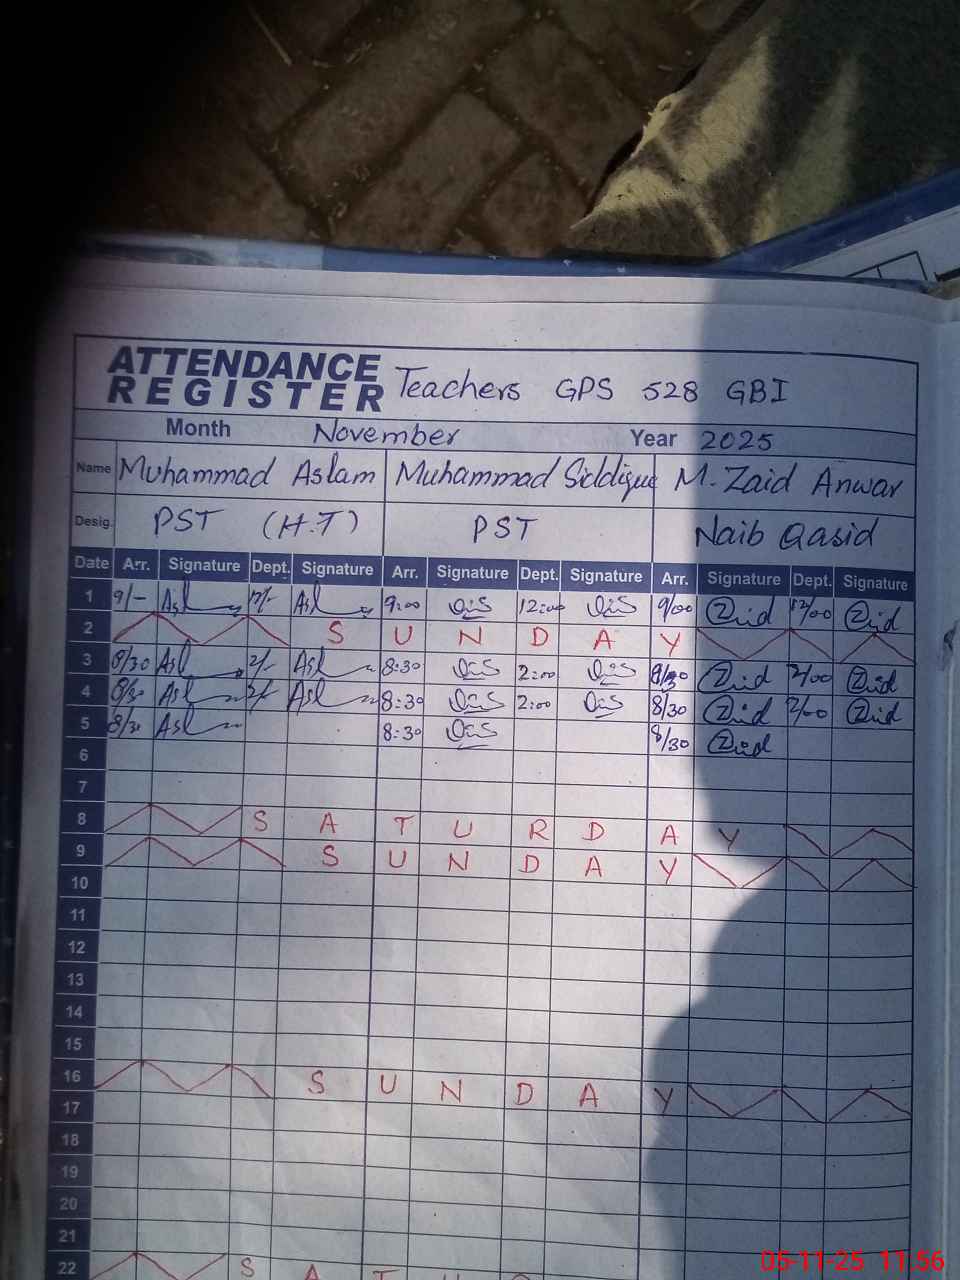 ATTENDANCE REGISTER Teachers GPS 528 GBI
Month November Year 2025
Name Muhammad Aslam Muhammad Siddique M. Zaid Anwar
Desig. PST (H.T) PST Naib Qasid
Date Arr. Signature Dept. Signature Arr. Signature Dept. Signature Arr. Signature Dept. Signature
1 9/- Asl 12/- Asl 9:00 12:00 9/00 Zaid 12/00 Zaid
2 S U N D A Y
3 8/30 Asl 2/- Asl 8:30 2:00 8/30 Zaid 2/00 Zaid
4 8/30 Asl 2/- Asl 8:30 2:00 8/30 Zaid 2/00 Zaid
5 8/30 Asl 8:30 8/30 Zaid
6
7
8 S A T U R D A Y
9 S U N D A Y
10
11
12
13
14
15
16 S U N D A Y
17
18
19
20
21
22 S A T U
05-11-25 11:56